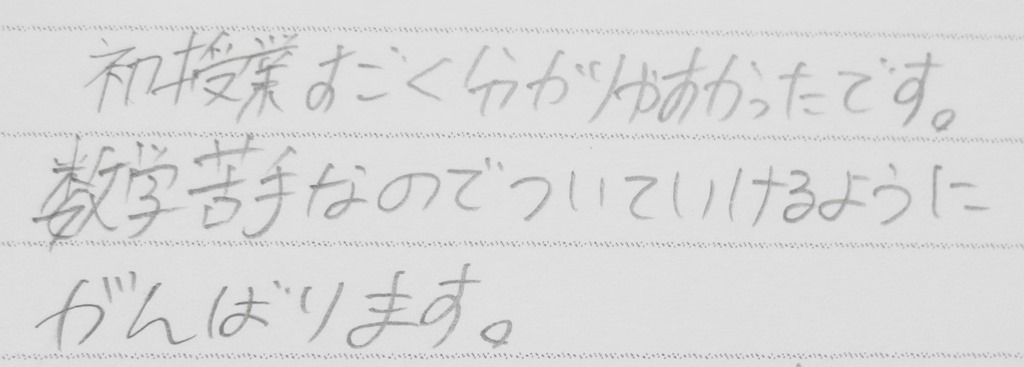 初授業すごく分がりやすかったです。
数学苦手なのでついていけるように
がんばります。